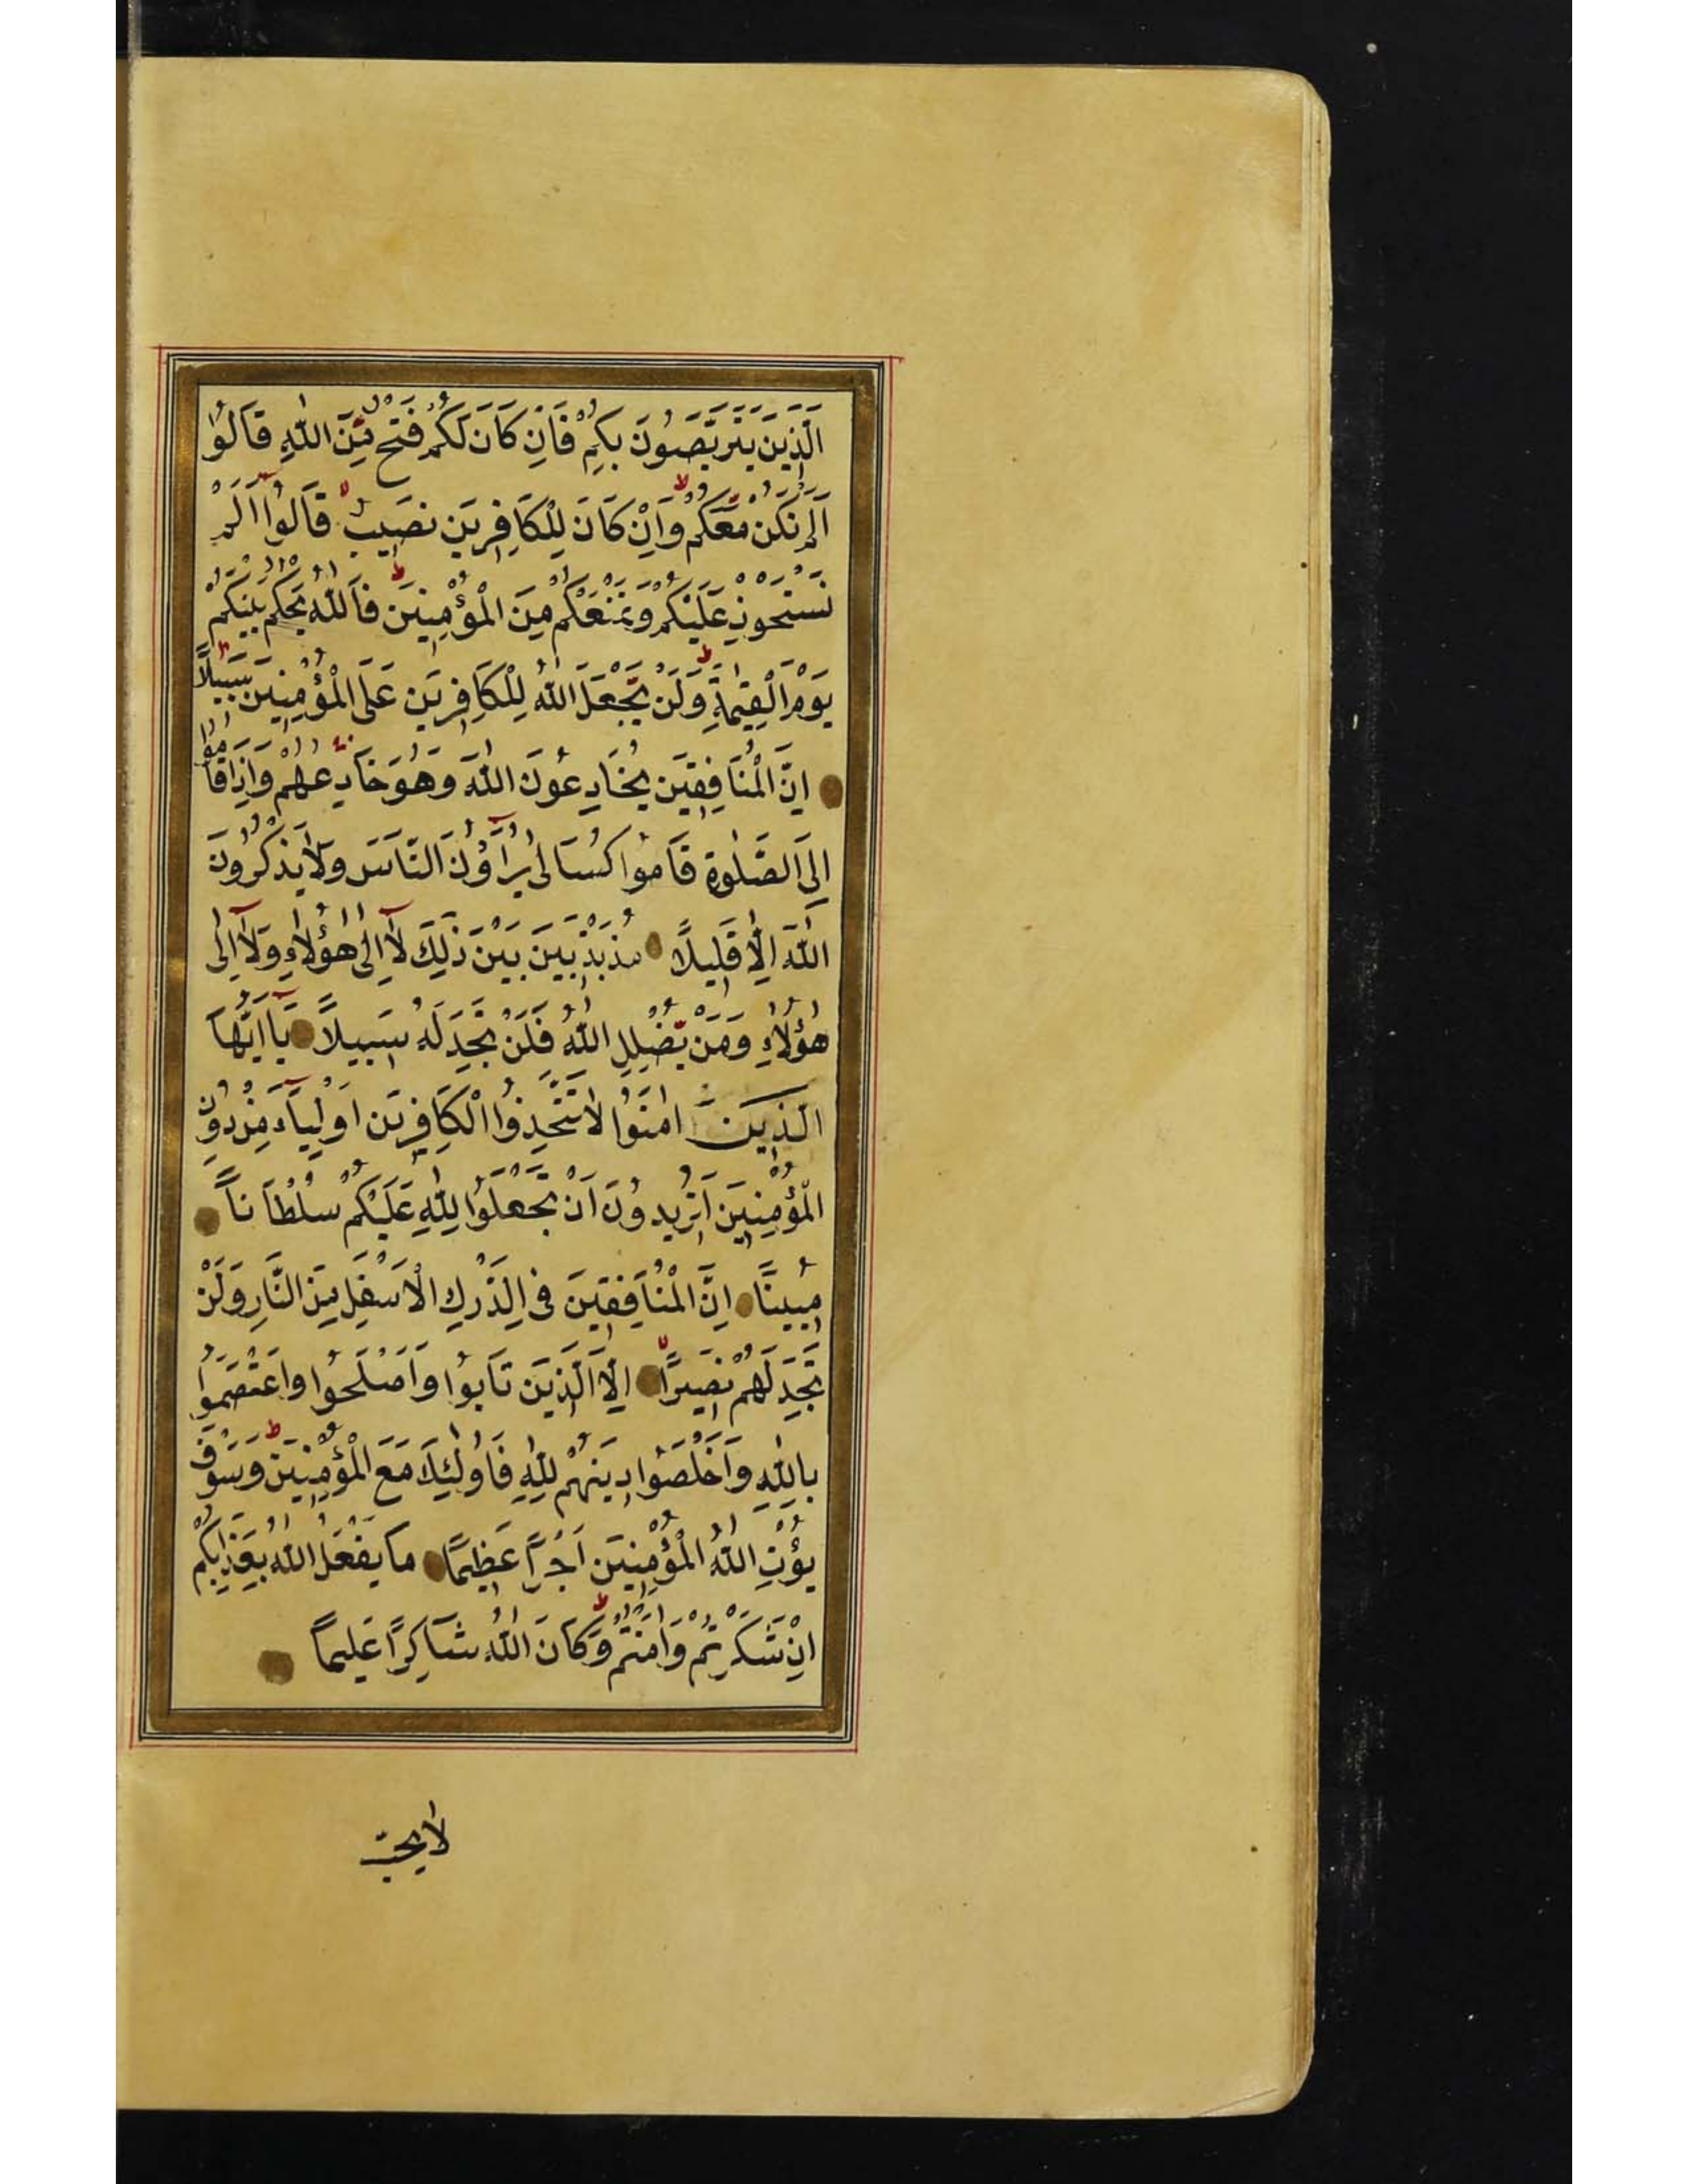 اَلَّذِينَ يَتَرَبَّصُونَ بِكُمْ فَاِنْ كَانَ لَكُمْ فَتْحٌ مِّنَ اللّٰهِ قَالُوٓا
اَلَمْ نَكُنْ مَّعَكُمْ وَاِنْ كَانَ لِلْكَافِرِينَ نَصِيبٌ قَالُوٓا اَلَمْ
نَسْتَحْوِذْ عَلَيْكُمْ وَنَمْنَعْكُمْ مِنَ الْمُؤْمِنِينَ فَاللّٰهُ يَحْكُمُ بَيْنَكُمْ
يَوْمَ الْقِيٰمَةِ وَلَنْ يَّجْعَلَ اللّٰهُ لِلْكَافِرِينَ عَلَى الْمُؤْمِنِينَ سَبِيلًا
اِنَّ الْمُنَافِقِينَ يُخَادِعُونَ اللّٰهَ وَهُوَ خَادِعُهُمْ وَاِذَا قَامُوا
اِلَى الصَّلٰوةِ قَامُوا كُسَالٰى يُرَآؤُنَ النَّاسَ وَلَا يَذْكُرُونَ
اللّٰهَ اِلَّا قَلِيلًا مُذَبْذَبِينَ بَيْنَ ذٰلِكَ لَآ اِلٰى هٰٓؤُلَاءِ وَلَآ اِلٰى
هٰٓؤُلَاءِ وَمَنْ يُّضْلِلِ اللّٰهُ فَلَنْ تَجِدَ لَهُ سَبِيلًا يَآ اَيُّهَا
الَّذِينَ اٰمَنُوا لَا تَتَّخِذُوا الْكَافِرِينَ اَوْلِيَآءَ مِنْ دُونِ
الْمُؤْمِنِينَ اَتُرِيدُونَ اَنْ تَجْعَلُوا لِلّٰهِ عَلَيْكُمْ سُلْطَانًا
مُبِينًا اِنَّ الْمُنَافِقِينَ فِى الدَّرْكِ الْاَسْفَلِ مِنَ النَّارِ وَلَنْ
تَجِدَ لَهُمْ نَصِيرًا اِلَّا الَّذِينَ تَابُوا وَاَصْلَحُوا وَاعْتَصَمُوا
بِاللّٰهِ وَاَخْلَصُوا دِينَهُمْ لِلّٰهِ فَاُولٰٓئِكَ مَعَ الْمُؤْمِنِينَ وَسَوْفَ
يُؤْتِ اللّٰهُ الْمُؤْمِنِينَ اَجْرًا عَظِيمًا مَا يَفْعَلُ اللّٰهُ بِعَذَابِكُمْ
اِنْ شَكَرْتُمْ وَاٰمَنْتُمْ وَكَانَ اللّٰهُ شَاكِرًا عَلِيمًا
لَا يُحِبُّ